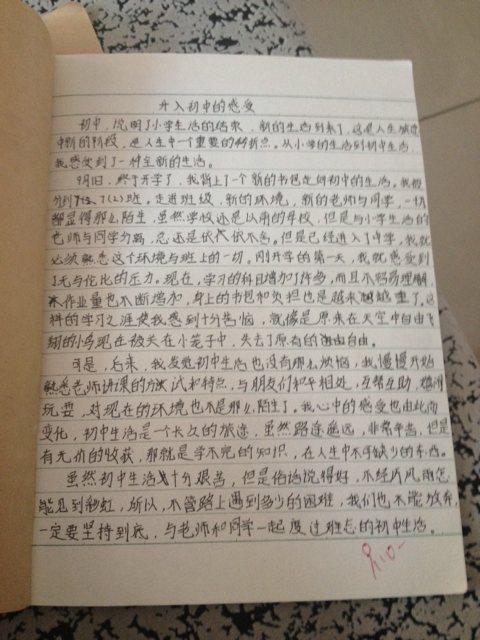 升入初中的感受
初中,说明了小学生活的结束,新的生活到来了,这是人生旅途
中新的阶段,是人生中一个重要的转折点。从小学的生活到初中生活,
我感受到了一种全新的生活。
9月1日,终于开学了,我背上了一个新的书包走向初中的生活。我被
分到了 7(2)班。走进班级,新的环境,新的老师与同学,一切
都显得那么陌生,虽然学校还是以前的母校,但是与小学生活的
老师与同学分离,总还是依依不舍。但是已经进入了中学,我就
必须熟悉这个环境与班上的一切。刚开学的第一天,我就感受到
了无与伦比的压力。现在,学习的科目增加了许多,而且不容易理解,
作业量也不断增加,身上的书包和负担也是越来越重了,这
样的学习之涯使我感到十分苦恼,就像是原来在天空中自由飞
翔的小鸟现在被关在小笼子中,失去了原有的自由。
可是,后来,我发觉初中生活也没有那么烦恼,我慢慢开始
熟悉老师讲课的方式和特点,与朋友们和平相处,互帮互助,嬉戏
玩耍,对现在的环境也不是那么陌生了,我心中的感受也由此而
变化,初中生活是一个长久的旅途,虽然路途遥远,非常辛苦,但是
有无价的收获,那就是学不完的知识,在人生中不可缺少的东西。
虽然初中生活十分艰苦,但是俗话说得好,不经历风雨怎
能见到彩虹,所以,不管路上遇到多少的困难,我们也不能放弃,
一定要坚持到底,与老师和同学一起度过难忘的初中生活。